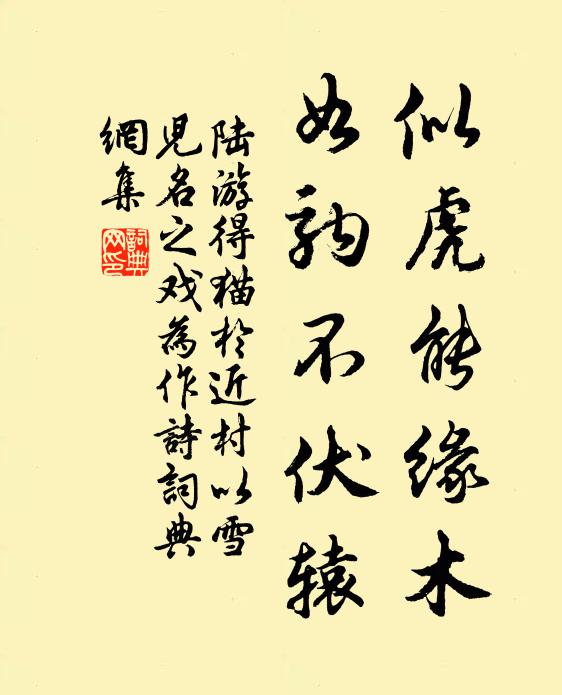 似虎能缘木
如驹不伏辕
陆游得猫於近村以雪
児名之戏為作詩詞典
網集
詞典
网印